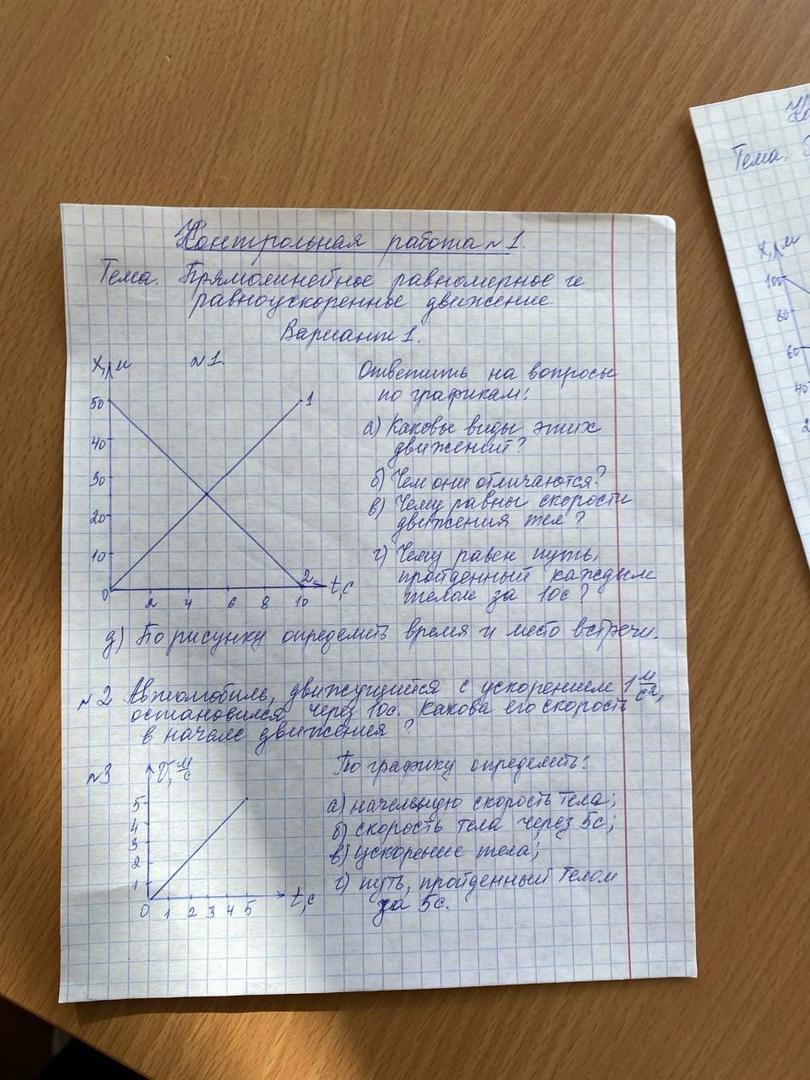 Контрольная работа №1.
Тема. Прямолинейное равномерное и
равноускоренное движение.
Вариант 1.
№1.
x, м
50
40
30
20
10
0
2
4
6
8
10
t, с
1
2
Ответить на вопросы
по графикам:
а) Каковы виды этих
движений?
б) Чем они отличаются?
в) Чему равны скорости
движения тел?
г) Чему равен путь,
пройденный каждым
телом за 10с?
д) По рисунку определить время и место встречи.
№2 Автомобиль, движущийся с ускорением 1 м/с²,
остановился через 10с. Какова его скорость
в начале движения?
№3
V, м/с
5
4
3
2
1
0
1 2 3 4 5
t, с
По графику определить:
а) начальную скорость тела;
б) скорость тела через 5с;
в) ускорение тела;
г) путь, пройденный телом
за 5с.
Тема.
x, м
100
80
60
40